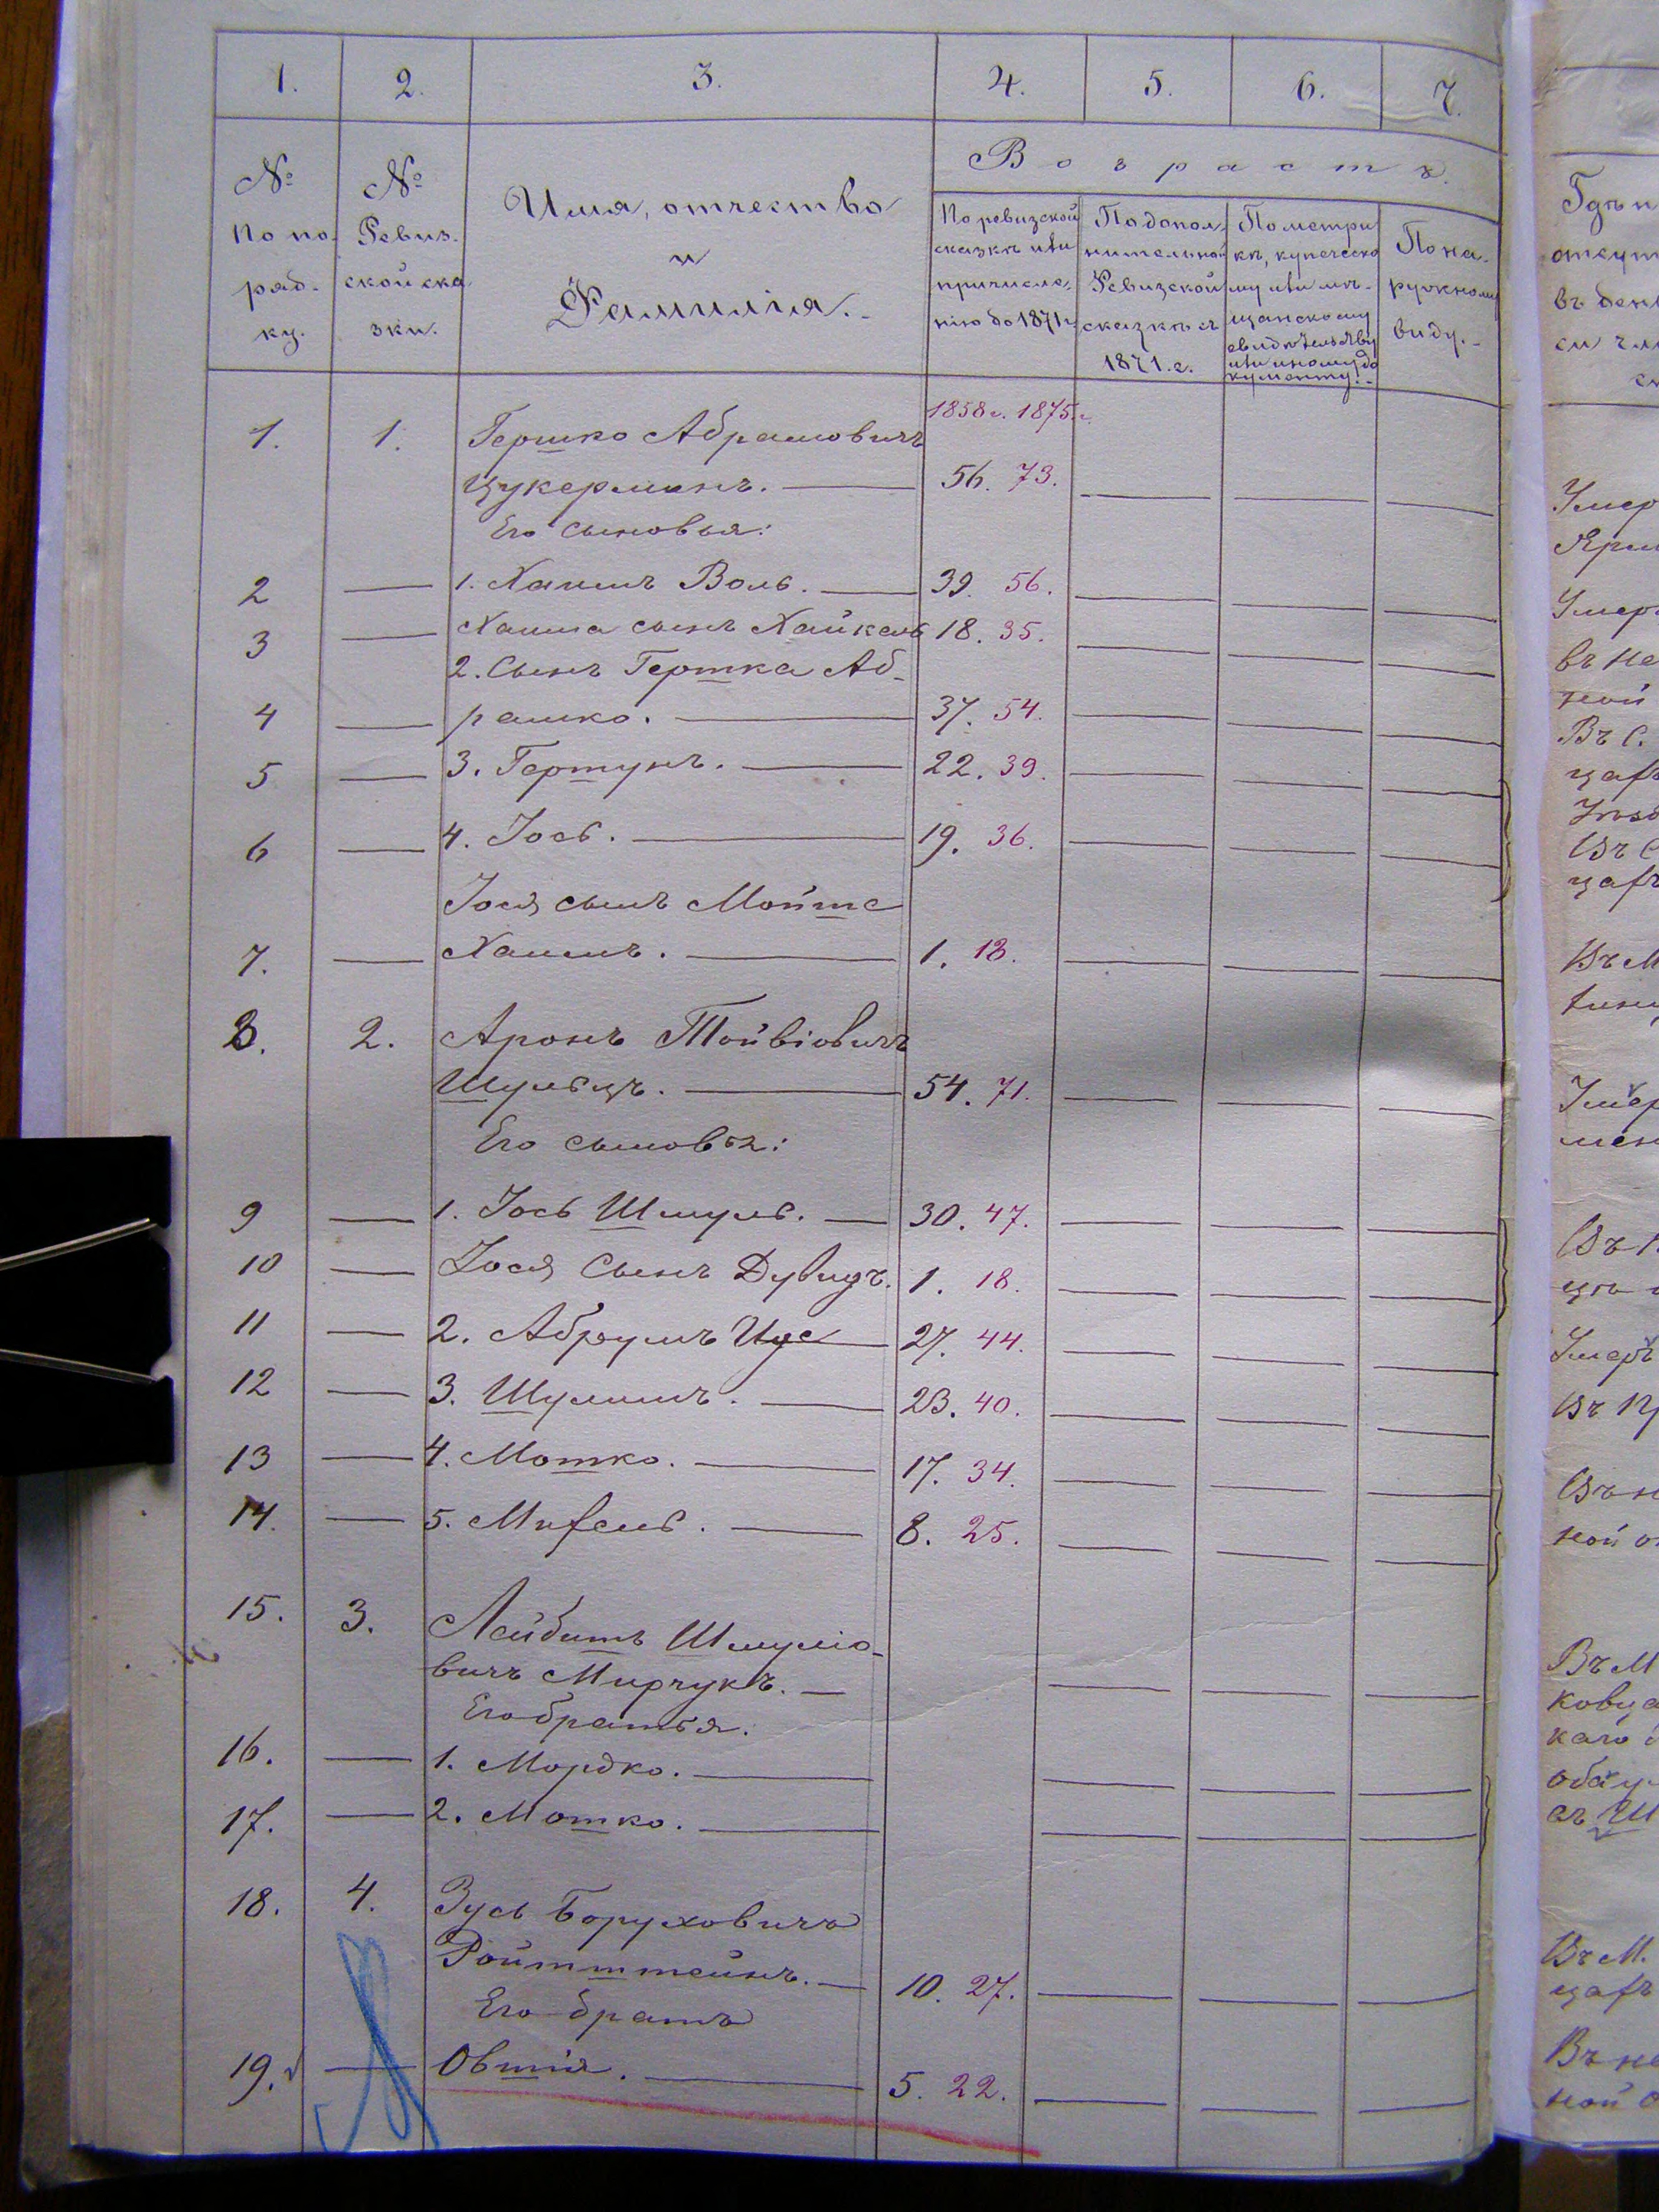 1. 2. 3. 4. 5. 6. 7.
№ По по-
ряд-
ку.
№ Ревиз-
ской ска-
зки.
Имя, отчество
и
Фамилія.
Возрастъ.
По ревизской
сказкѣ или
причисле-
нію до 1871 г.
По допол-
нительной
Ревизской
сказкѣ съ
1871. г.
По метри-
кѣ, купеческо-
му или мѣ-
щанскому
свидѣтельству
или иному до-
кументу.
По на-
ружному
виду.
1858 г. 1875 г.
1. 1. Гершко Абрамовичъ
Цукерманъ. 56. 73.
Его сыновья:
2 1. Хаимъ Воль. 39. 56.
3 Хаима сынъ Хайкель 18. 35.
2. Сынъ Гершка Аб-
4 рашко. 37. 54.
5 3. Гершунъ. 22. 39.
6 4. Іось. 19. 36.
Іося сынъ Мойше
7. Хаимъ. 1. 18.
8. 2. Аронъ Тойвіовичъ
Шульцъ. 54. 71.
Его сыновья:
9 1. Іось Шмуль. 30. 47.
10 Іося Сынъ Дувидъ. 1. 18.
11 2. Абрумъ 27. 44.
12 3. Шулимъ. 23. 40.
13 4. Мошко. 17. 34.
14. 5. 8. 25.
15. 3. Лейбишъ Шмуліо-
вичъ Мирчукъ.
Его братья.
16. 1. Мордко.
17. 2. Мошко.
18. 4. Зусь Боруховичъ
Ройтштейнъ. 10. 27.
Его братъ
19. Овшія. 5. 22.
Умер
Умер
Въ С.
Въ М
Умер
Умеръ
Въ М
кова
каго
Въ М.
Въ не
ной о